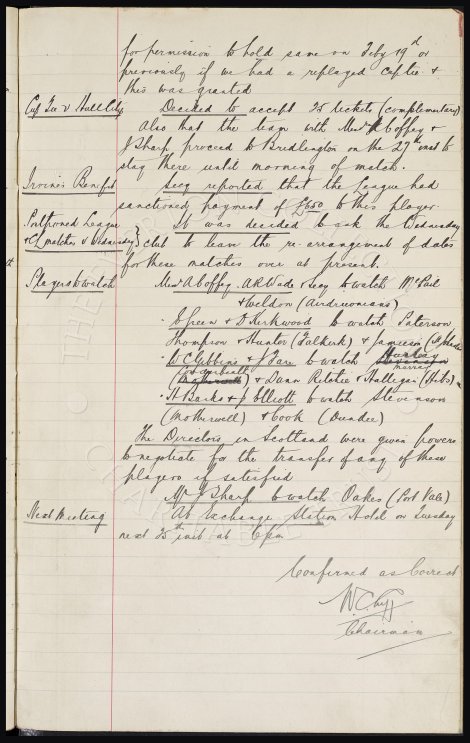 for permission to hold same on Feby 19th or
previously if we had a replayed cup tie &
this was granted
Cup Tie v Hull City Decided to accept 25 tickets (complimentary)
Also that the team with Messrs A Coffey &
J Sharp proceed to Bridlington on the 27th inst to
stay there until morning of match.
Irvine's Benefit Secy reported that the League had
sanctioned payment of £650 to this player.
Postponed League It was decided to ask the Wednesday
& CL matches v Wednesday } club to leave the re-arrangement of dates
for these matches over at present.
Players to watch Messrs A Coffey. A R Wade & Secy to watch McPail
& Weldon (Airdrieonians)
E Green & D Kirkwood to watch Paterson
Thompson & Hunter (Falkirk) & Jamieson
W C Gibbins & J Fare to watch
Murray
(Motherwell) & Dunn Ritchie & Halligan (Hibs)
H Banks & J Elliott to watch Stevenson
(Motherwell) & Cook (Dundee)
The Directors in Scotland were given powers
to negotiate for the transfer of any of these
players if satisfied
Mr J Sharp to watch Oakes (Port Vale)
Next Meeting At Exchange Station Hotel on Tuesday
next 25th inst at 6 pm
Confirmed as Correct
W.C. Cuff
Chairman